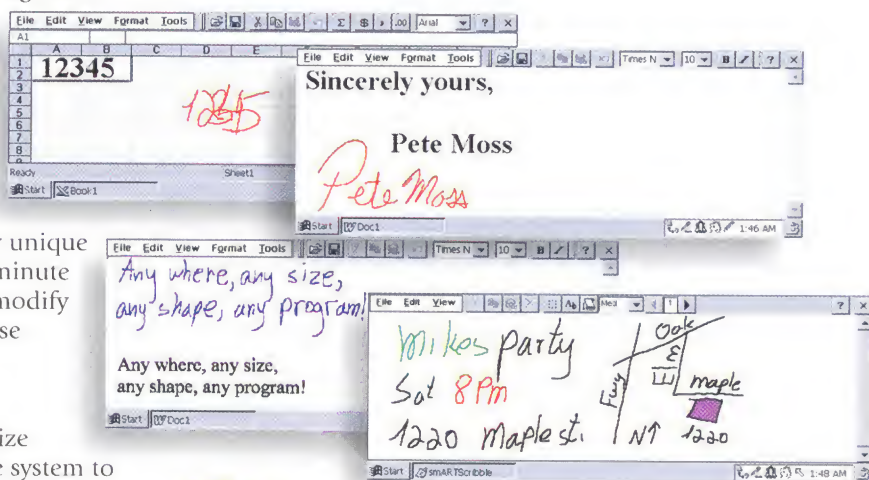 File Edit View Format Tools Σ $ , .00 Arial ? ×
A1
A B C D E
1 12345
2
3
4 12345
5
6
7
8
9
Ready Sheet1
Start Book1
File Edit View Format Tools Times N 10 B I ? ×
Sincerely yours,
Pete Moss
Pete Moss
Start Doc1 1:46 AM
unique
minute
modify
se
ize
system to
File Edit View Format Tools Times N 10 B I ? ×
Any where, any size,
any shape, any program!
Any where, any size,
any shape, any program!
Start Doc1
File Edit View Med 1 ? ×
Mikes party
Sat 8Pm
1220 Maple st.
Oak
Elm
Fwy
maple
N↑ 1220
Start smARTScribble 1:48 AM